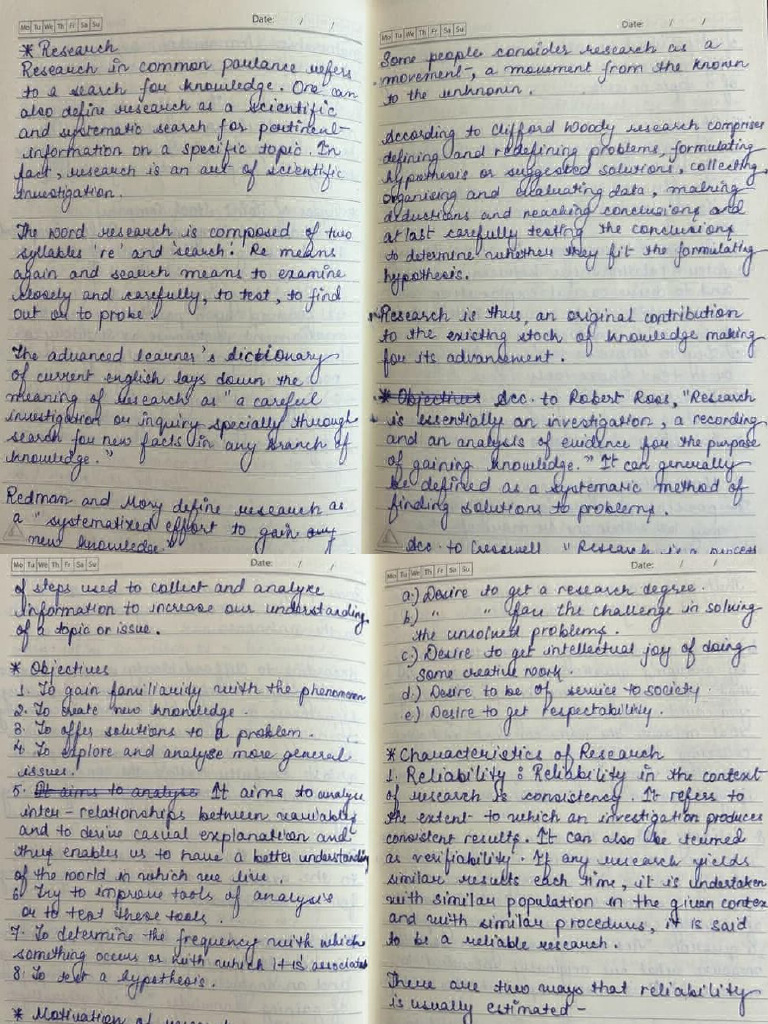 Mo Tu We Th Fr Sa Su Date: / /
* Research
Research in common parlance refers
to a search for knowledge. One can
also define research as a scientific
and systematic search for pertinent
information on a specific topic. In
fact, research is an art of scientific
investigation.
The word research is composed of two
syllables 're' and 'search'. Re means
again and search means to examine
closely and carefully, to test, to find
out or to probe.
The advanced learner's dictionary
of current english lays down the
meaning of research as "a careful
investigation or inquiry specially through
search for new facts in any branch of
knowledge."
Redman and Mory define research as
a "systematized effort to gain any
new knowledge."
Mo Tu We Th Fr Sa Su Date: / /
Some people consider research as a
movement, a movement from the known
to the unknown.
According to Clifford Woody research comprises
defining and redefining problems, formulating
hypothesis or suggested solutions, collecting,
organising and evaluating data, making
deductions and reaching conclusions and
at last carefully testing the conclusions
to determine whether they fit the formulating
hypothesis.
Research is thus, an original contribution
to the existing stock of knowledge making
for its advancement.
* Objectives Acc. to Robert Ross, "Research
is essentially an investigation, a recording
and an analysis of evidence for the purpose
of gaining knowledge." It can generally
be defined as a systematic method of
finding solutions to problems.
Acc. to Creswell "Research is a process
Mo Tu We Th Fr Sa Su Date: / /
of steps used to collect and analyze
information to increase our understanding
of a topic or issue.
* Objectives
1. To gain familiarity with the phenomenon
2. To create new knowledge.
3. To offer solutions to a problem.
4. To explore and analyse more general
issues.
5. It aims to analyse It aims to analyse
inter-relationships between variables
and to derive casual explanation and
thus enables us to have a better understanding
of the world in which we live.
6. Try to improve tools of analysis
or to test these tools.
7. To determine the frequency with which
something occurs or with which it is associated
8. To test a hypothesis.
* Motivation of research
Mo Tu We Th Fr Sa Su Date: / /
a.) Desire to get a research degree.
b.) " " face the challenge in solving
the unsolved problems.
c.) Desire to get intellectual joy of doing
some creative work.
d.) Desire to be of service to society.
e.) Desire to get respectability.
* Characteristics of Research
1. Reliability : Reliability in the context
of research is consistency. It refers to
the extent to which an investigation produces
consistent results. It can also be termed
as 'verifiability'. If any research yields
similar results each time, it is undertaken
with similar population in the given context
and with similar procedures, it is said
to be a reliable research.
There are two ways that reliability
is usually estimated -